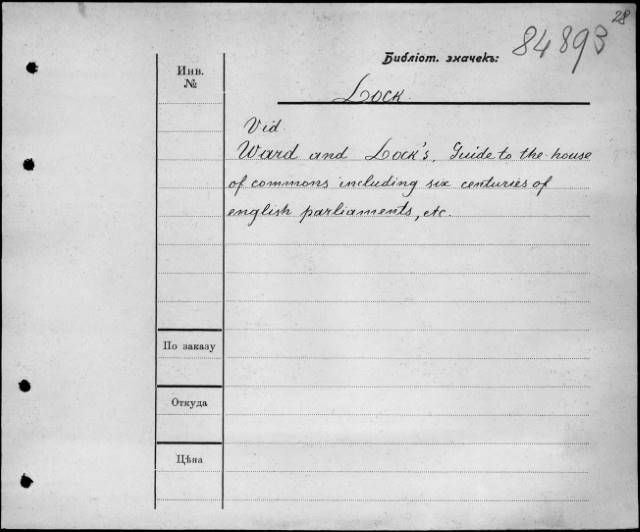 28
84893
Библіот. значекъ:
Инв.
№
Lock.
Vid.
Ward and Lock's. Guide to the house
of commons including six centuries of
english parliaments, etc.
По заказу
Откуда
Цѣна